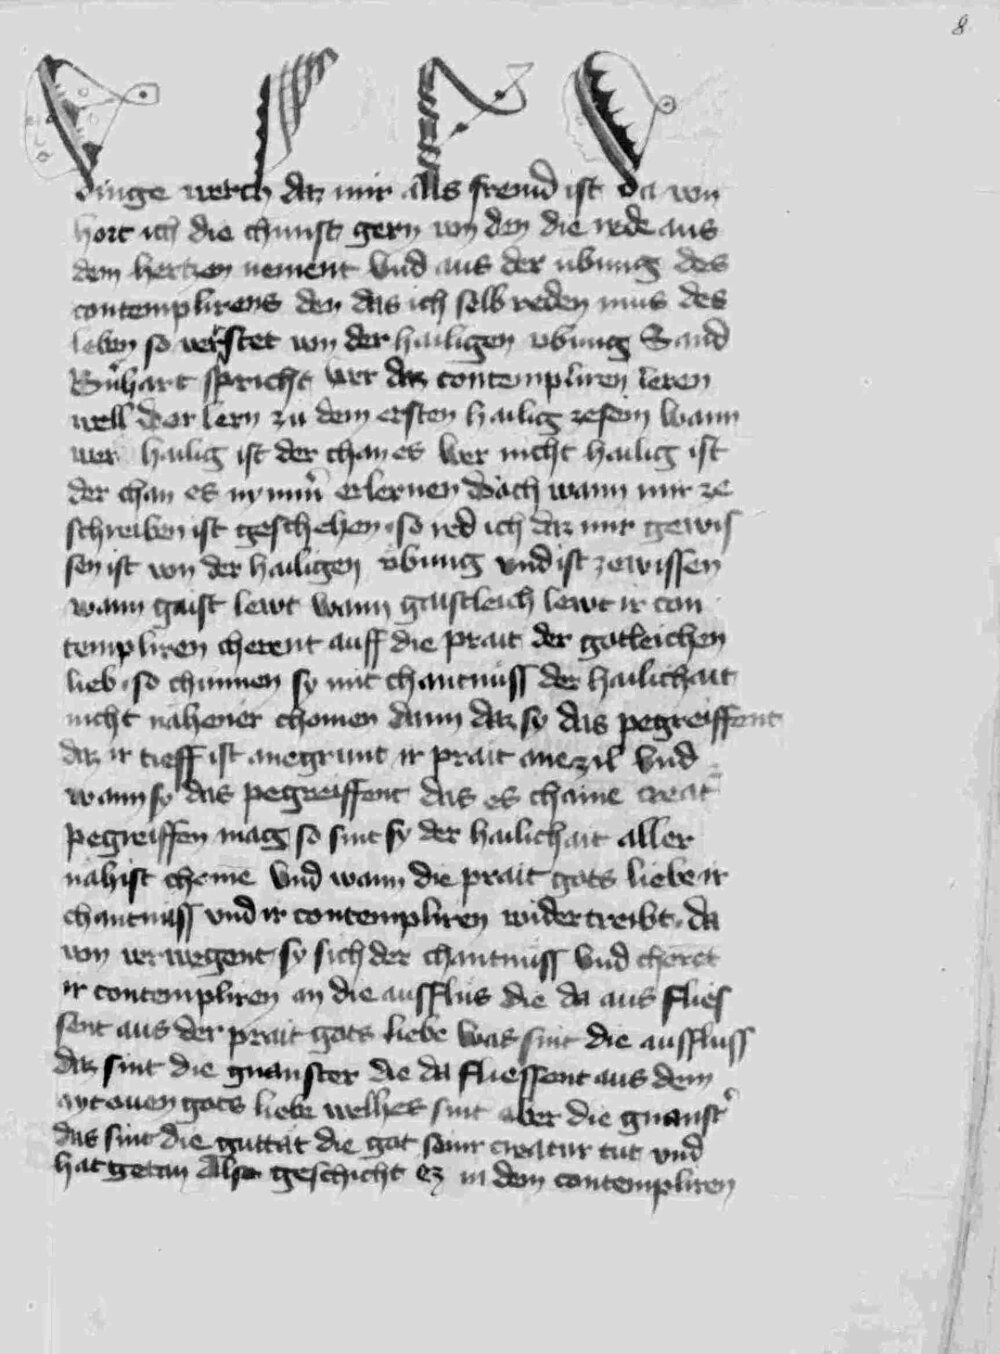 8
dinge werch daz mir alls fremd ist da von
hort ich die chunst gern von den die rede aus
dem hertzen nement vnd aus der übung des
contemplirens den das ich selb reden mus des
leben so verrstet von der hailigen vbung Sand
Bernhart spricht wer daz contempliren leren
well der lern zu dem ersten hailig zesein wann
wer hailig ist der chan es wer nicht hailig ist
der chan es nymm̃ erlernen doch wann mir ze
schreiben ist geschehen so red ich daz mir gewis
sen ist von der hailigen vbung vnd ist zewissen
wann gaist lewt wann gaistleich lewt ir con
templiren cherent auff die prait der gotleichen
lieb so chunnen sy mit chantnuss der hailichait
nicht nähener chomen dann daz sy das pegreiffent
daz ir tieff ist anegrunt ir prait ane zil vnd
wann sy das pegreiffent das es chaine creat̃
pegreiffen mag so sint sy der hailichait aller
nähist chome vnd wann die prait gots liebe ir
chantnuss vnd ir contempliren widertreibt da
von verwegent sy sich der chantnuss vnd cherēt
ir contempliren an die ausflüs die da aus flies
sent aus der prait gots liebe was sint die ausfluss
daz sint die gnanster die da fliessent aus dem
aytouen gots liebe welhes sint aber die gnanst̃
das sint die guttat die got seinr creatur tut vnd
hat getan Also geschicht ez in dem contempliren